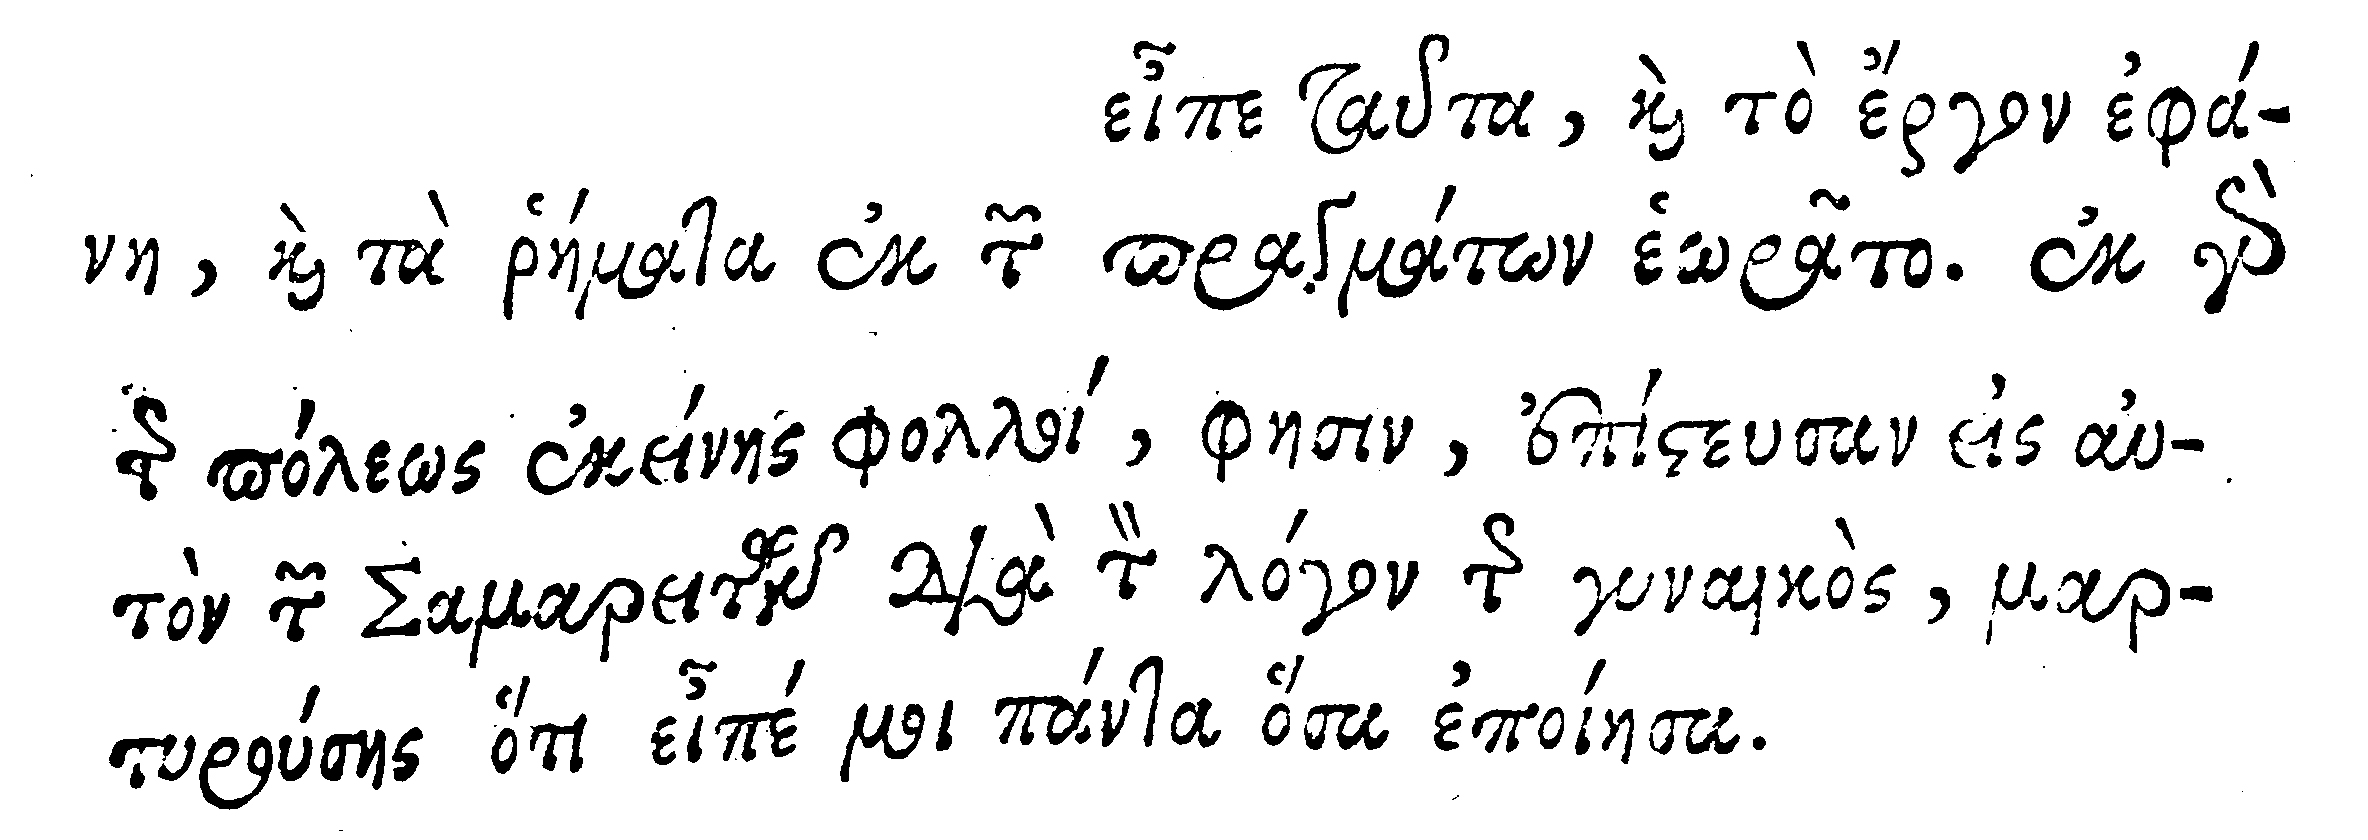 εἶπε ταῦτα, καὶ τὸ ἔργον ἐφά-
νη, καὶ τὰ ῥήματα ἐκ τῶν πραγμάτων ἑωρᾶτο. ἐκ γὰρ
τῆς πόλεως ἐκείνης φολλοί, φησιν, ἐπίστευσαν εἰς αὐ-
τὸν τῶν Σαμαρειτῶν διὰ τὸν λόγον τῆς γυναικὸς, μαρ-
τυρούσης ὅτι εἶπέ μοι πάντα ὅσα ἐποίησα.